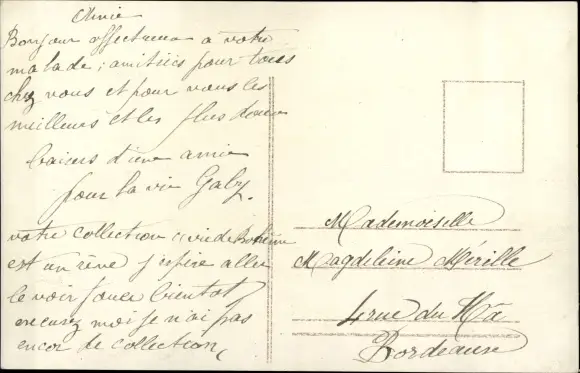 Amie
Bonjour affectueux a votre
malade ; amitiés pour tous
chez vous et pour vous les
meilleurs et les plus doux
baisers d'une amie
pour la vie Gaby.
votre collection
est un rêve j'espère aller
le voir bientot
excusez moi je n'ai pas
encor de collection
Mademoiselle
Magdeleine Mérille
4 rue du Hâ
Bordeaux